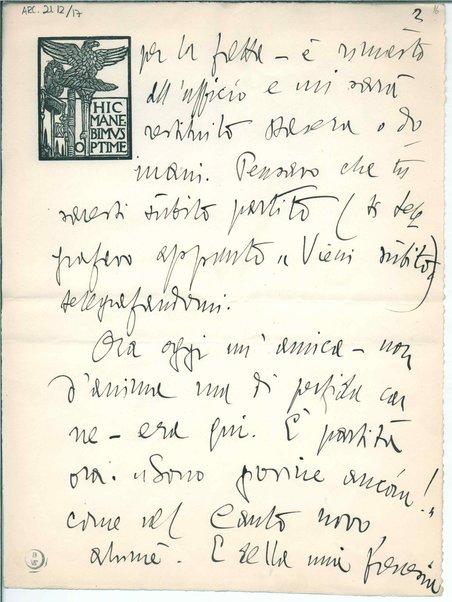 ARC. 21 12/17
2
16
HIC
MANE
BIMVS
OPTIME
per la fretta – è rimasto
all'ufficio e mi sarà
restituito stasera o do
mani. Pensavo che tu
saresti sùbito partito (ti tele
grafavo appunto « Vieni sùbito »)
telegrafandomi.
Ora oggi un'amica – non
d'anima ma di perfida car
ne – era qui. È partita
ora. « Sono giovine ancóra! »
come nel Canto novo
ahimè. E della mia